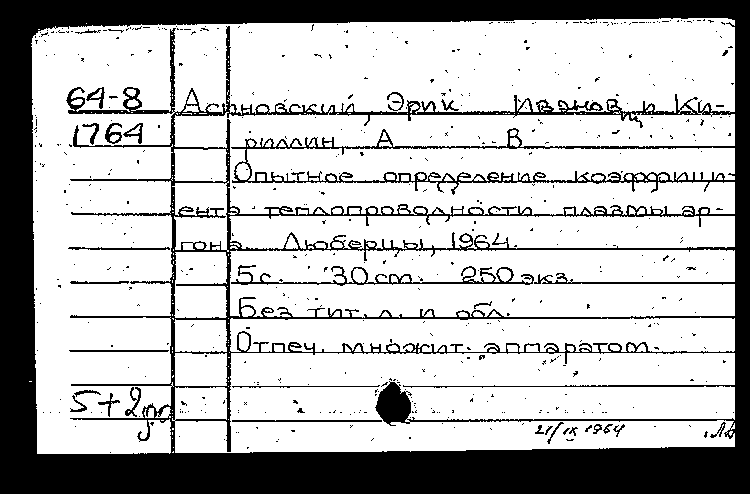 64-8 Асиновский, Эрик Иванов. и Ки-
1764 риллин, А В
Опытное определение коэффици-
ента теплопроводности плазмы ар-
гона. Люберцы, 1964.
5 с. 30 cm. 250 экз.
Без тит. л. и обл.
Отпеч. множит. аппаратом.
5+2
21/IX 1964